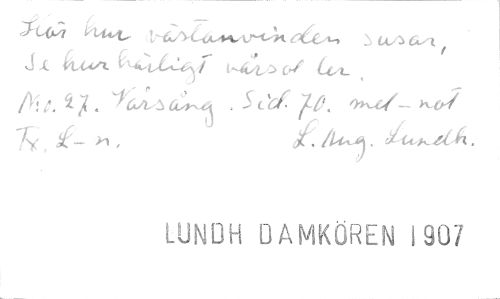 Hör hur västanvinden susar,
Se hur härligt vårsol ler.
No. 27. Vårsång. Sid. 70. mel-not
Tx. L-n. L. Aug. Lundh.
LUNDH DAMKÖREN 1907